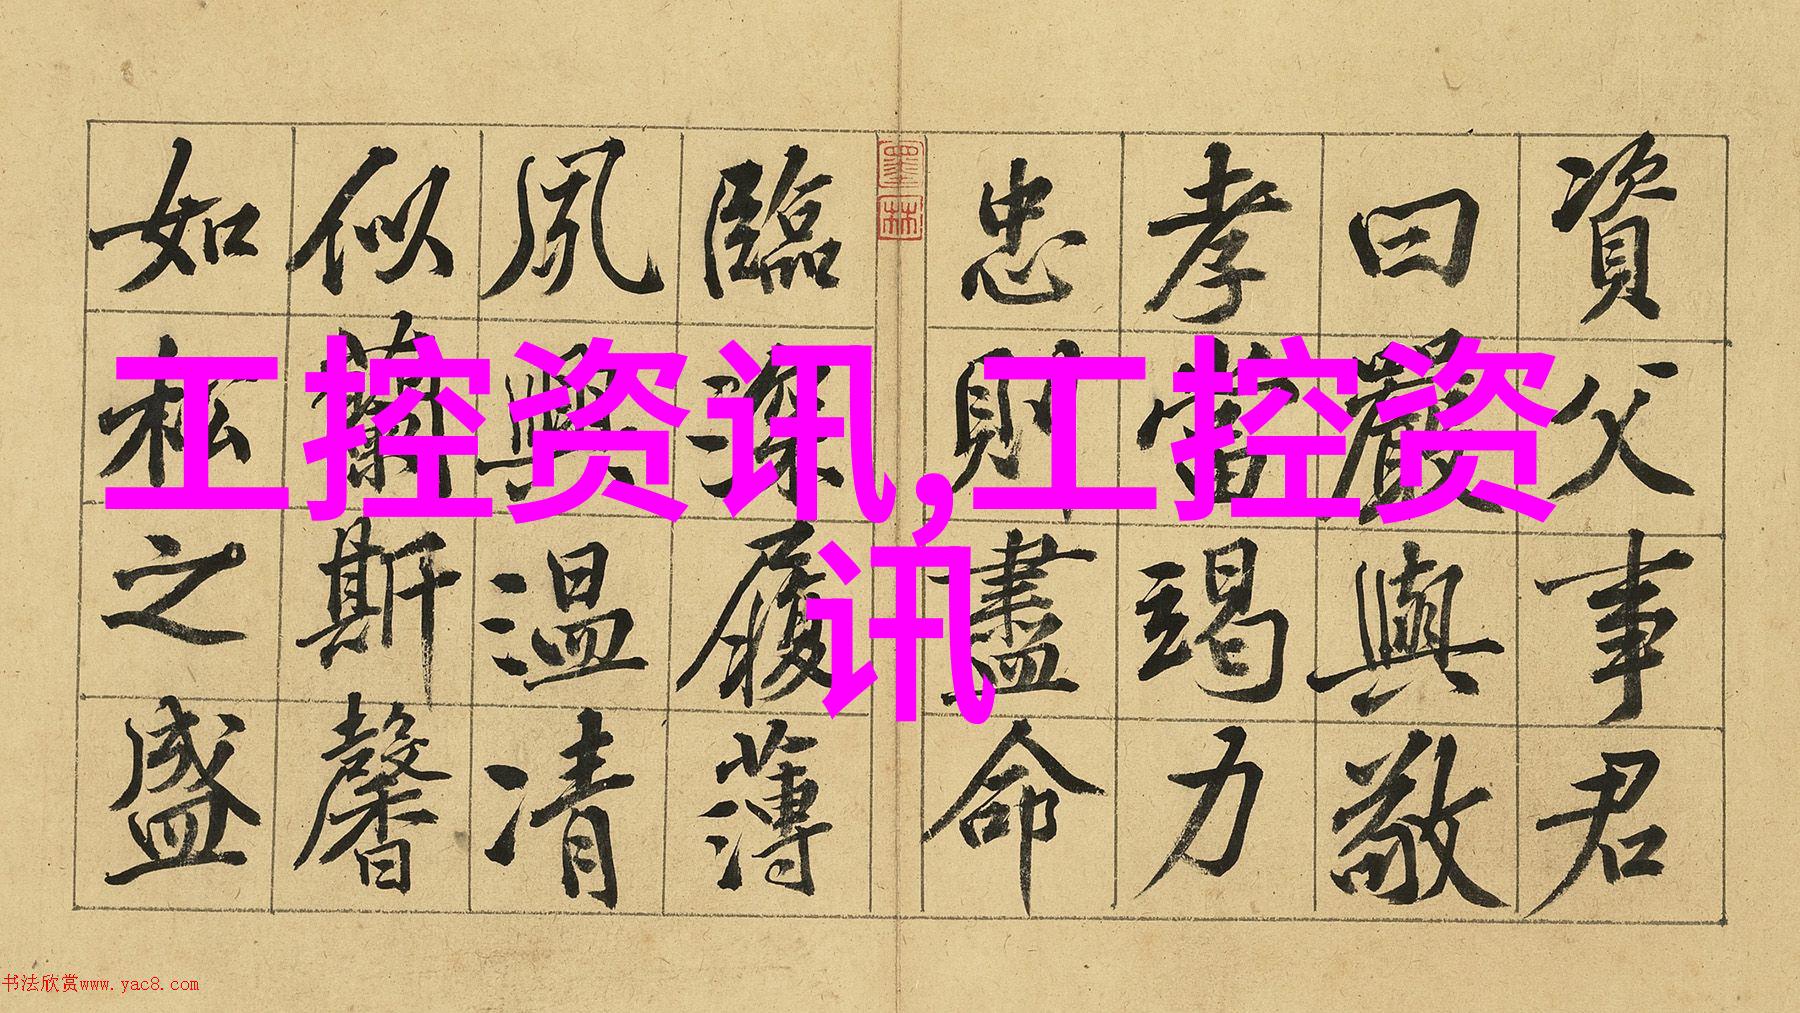 資父事君
曰嚴與敬
孝當竭力
忠則盡命
墨林
臨深履薄
夙興温凊
似蘭斯馨
如松之盛
工控资讯,工控资
讯
书法欣赏www.yac8.com